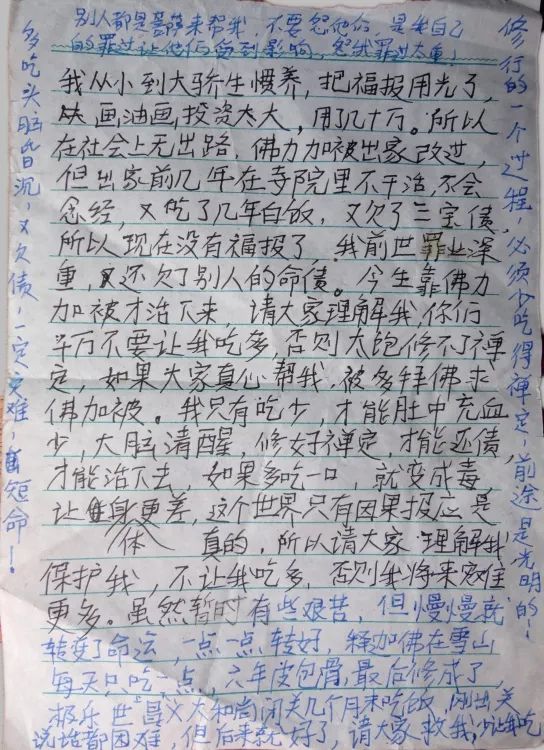 别人都是菩萨来帮我，不要怨他们，是我自己
的罪过让他们受到影响，怨我罪过太重！
我从小到大骄生惯养，把福报用光了，
从画油画，投资太大，用了几十万。所以
在社会上无出路，佛力加被出家改过，
但出家前几年在寺院里不干活，不会
念经，又吃了几年白饭，又欠了三宝债，
所以现在没有福报了 我前世罪业深
重，又还欠了别人的命债。今生靠佛力
加被才活下来，请大家理解我，你们
千万不要让我吃多，否则太饱修不了禅
定，如果大家真心帮我，被多拜佛求
佛加被。我只有吃少，才能肚中充血
少，大脑清醒，修好禅定，才能还债，
才能活下去，如果多吃一口，就变成毒
让身体更差，这个世界只有因果报应是
真的，所以请大家理解我
保护我，不让我吃多，否则我将来灾难
更多。虽然暂时有些艰苦，但慢慢就
转变了命运，一点一点转好，释迦佛在雪山
每天只吃一点，六年皮包骨，最后修成了，
极乐世 大和尚闭关几个月未吃饭，刚出关
说话都困难，但后来就好了，请大家救我，少让我吃
多吃头脑昏沉，又欠债，一定 难，短命！
修行的一个过程，必须少吃得禅定，前途是光明的！